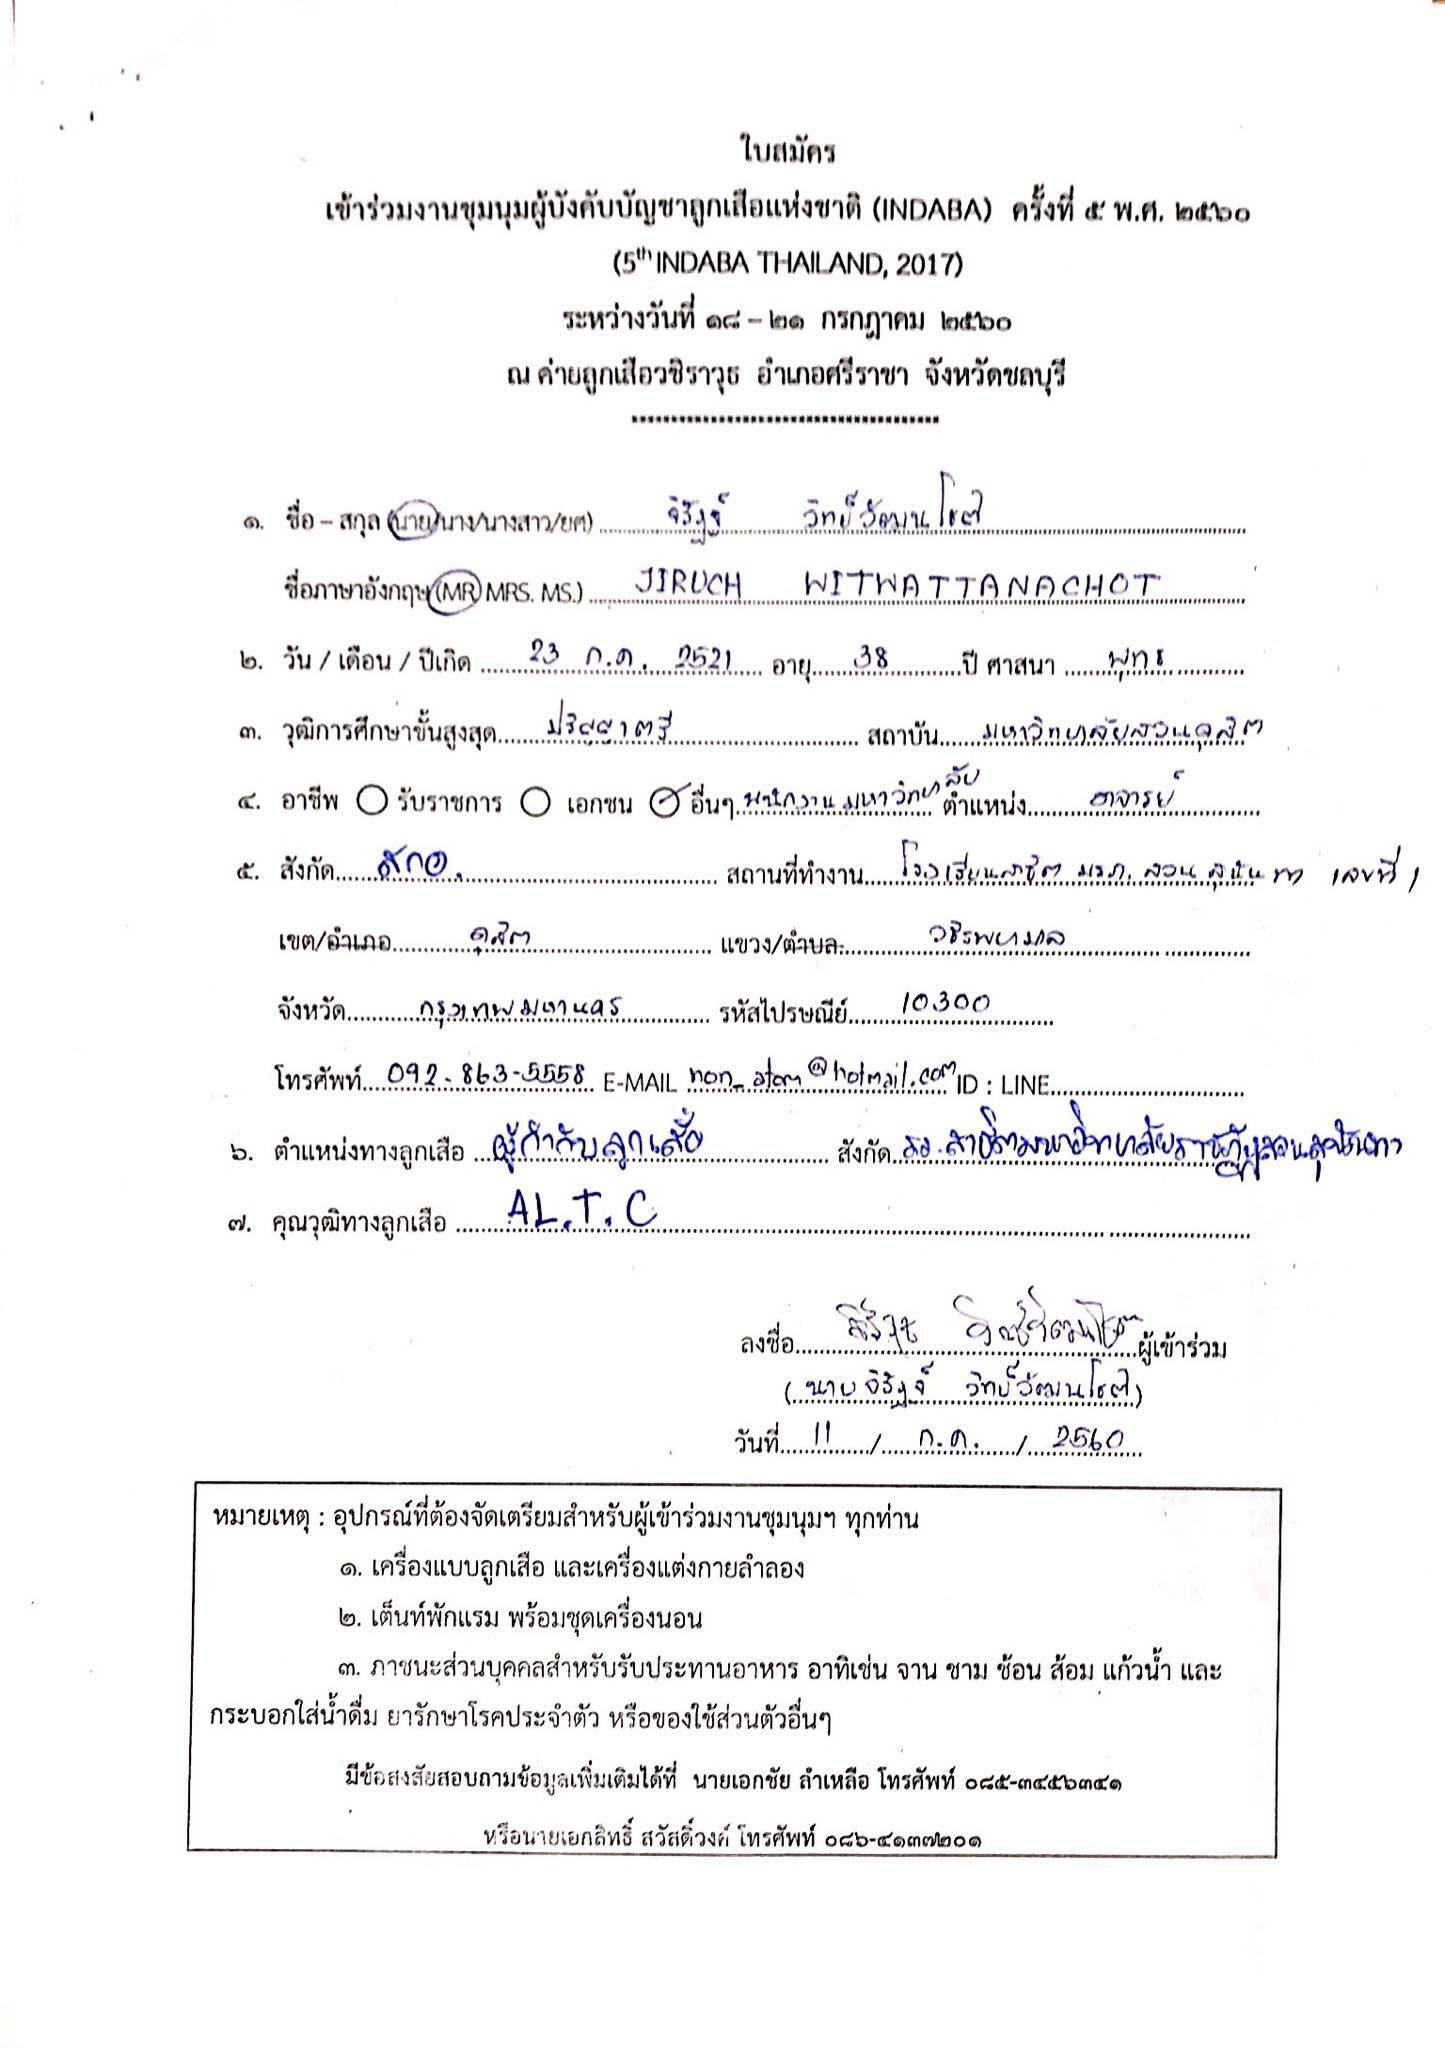 ใบสมัคร
เข้าร่วมงานชุมนุมผู้บังคับบัญชาลูกเสือแห่งชาติ (INDABA) ครั้งที่ ๕ พ.ศ. ๒๕๖๐
(5th INDABA THAILAND, 2017)
ระหว่างวันที่ ๑๘ – ๒๑ กรกฎาคม ๒๕๖๐
ณ ค่ายลูกเสือวชิราวุธ อำเภอศรีราชา จังหวัดชลบุรี
๑. ชื่อ – สกุล (นาย/นาง/นางสาว/ยศ) จิรัฏฐ์ วิทย์วัฒนโชติ
ชื่อภาษาอังกฤษ (MR. MRS. MS.) JIRUCH WITWATTANACHOT
๒. วัน / เดือน / ปีเกิด 23 ก.ค. 2521 อายุ 38 ปี ศาสนา พุทธ
๓. วุฒิการศึกษาขั้นสูงสุด ปริญญาตรี สถาบัน มหาวิทยาลัยสวนดุสิต
๔. อาชีพ รับราชการ เอกชน อื่นๆ พนักงานมหาวิทยาลัย ตำแหน่ง อาจารย์
๕. สังกัด สกอ. สถานที่ทำงาน โรงเรียนสาธิต มรภ. สวนสุนันทา เลขที่ 1
เขต/อำเภอ ดุสิต แขวง/ตำบล วชิรพยาบาล
จังหวัด กรุงเทพมหานคร รหัสไปรษณีย์ 10300
โทรศัพท์ 092-863-5558 E-MAIL non_atom@hotmail.com ID : LINE
๖. ตำแหน่งทางลูกเสือ ผู้กำกับลูกเสือ สังกัด รร.สาธิตมหาวิทยาลัยราชภัฏสวนสุนันทา
๗. คุณวุฒิทางลูกเสือ A.L.T.C
ลงชื่อ ผู้เข้าร่วม
(นายจิรัฏฐ์ วิทย์วัฒนโชติ)
วันที่ 11 / ก.ค. / 2560
หมายเหตุ : อุปกรณ์ที่ต้องจัดเตรียมสำหรับผู้เข้าร่วมงานชุมนุมฯ ทุกท่าน
๑. เครื่องแบบลูกเสือ และเครื่องแต่งกายลำลอง
๒. เต็นท์พักแรม พร้อมชุดเครื่องนอน
๓. ภาชนะส่วนบุคคลสำหรับรับประทานอาหาร อาทิเช่น จาน ชาม ช้อน ส้อม แก้วน้ำ และ
กระบอกใส่น้ำดื่ม ยารักษาโรคประจำตัว หรือของใช้ส่วนตัวอื่นๆ
มีข้อสงสัยสอบถามข้อมูลเพิ่มเติมได้ที่ นายเอกชัย ลำเหลือ โทรศัพท์ ๐๘๕-๓๔๕๖๓๔๑
หรือนายเอกสิทธิ์ สวัสดิ์วงค์ โทรศัพท์ ๐๘๖-๔๑๓๗๒๐๑